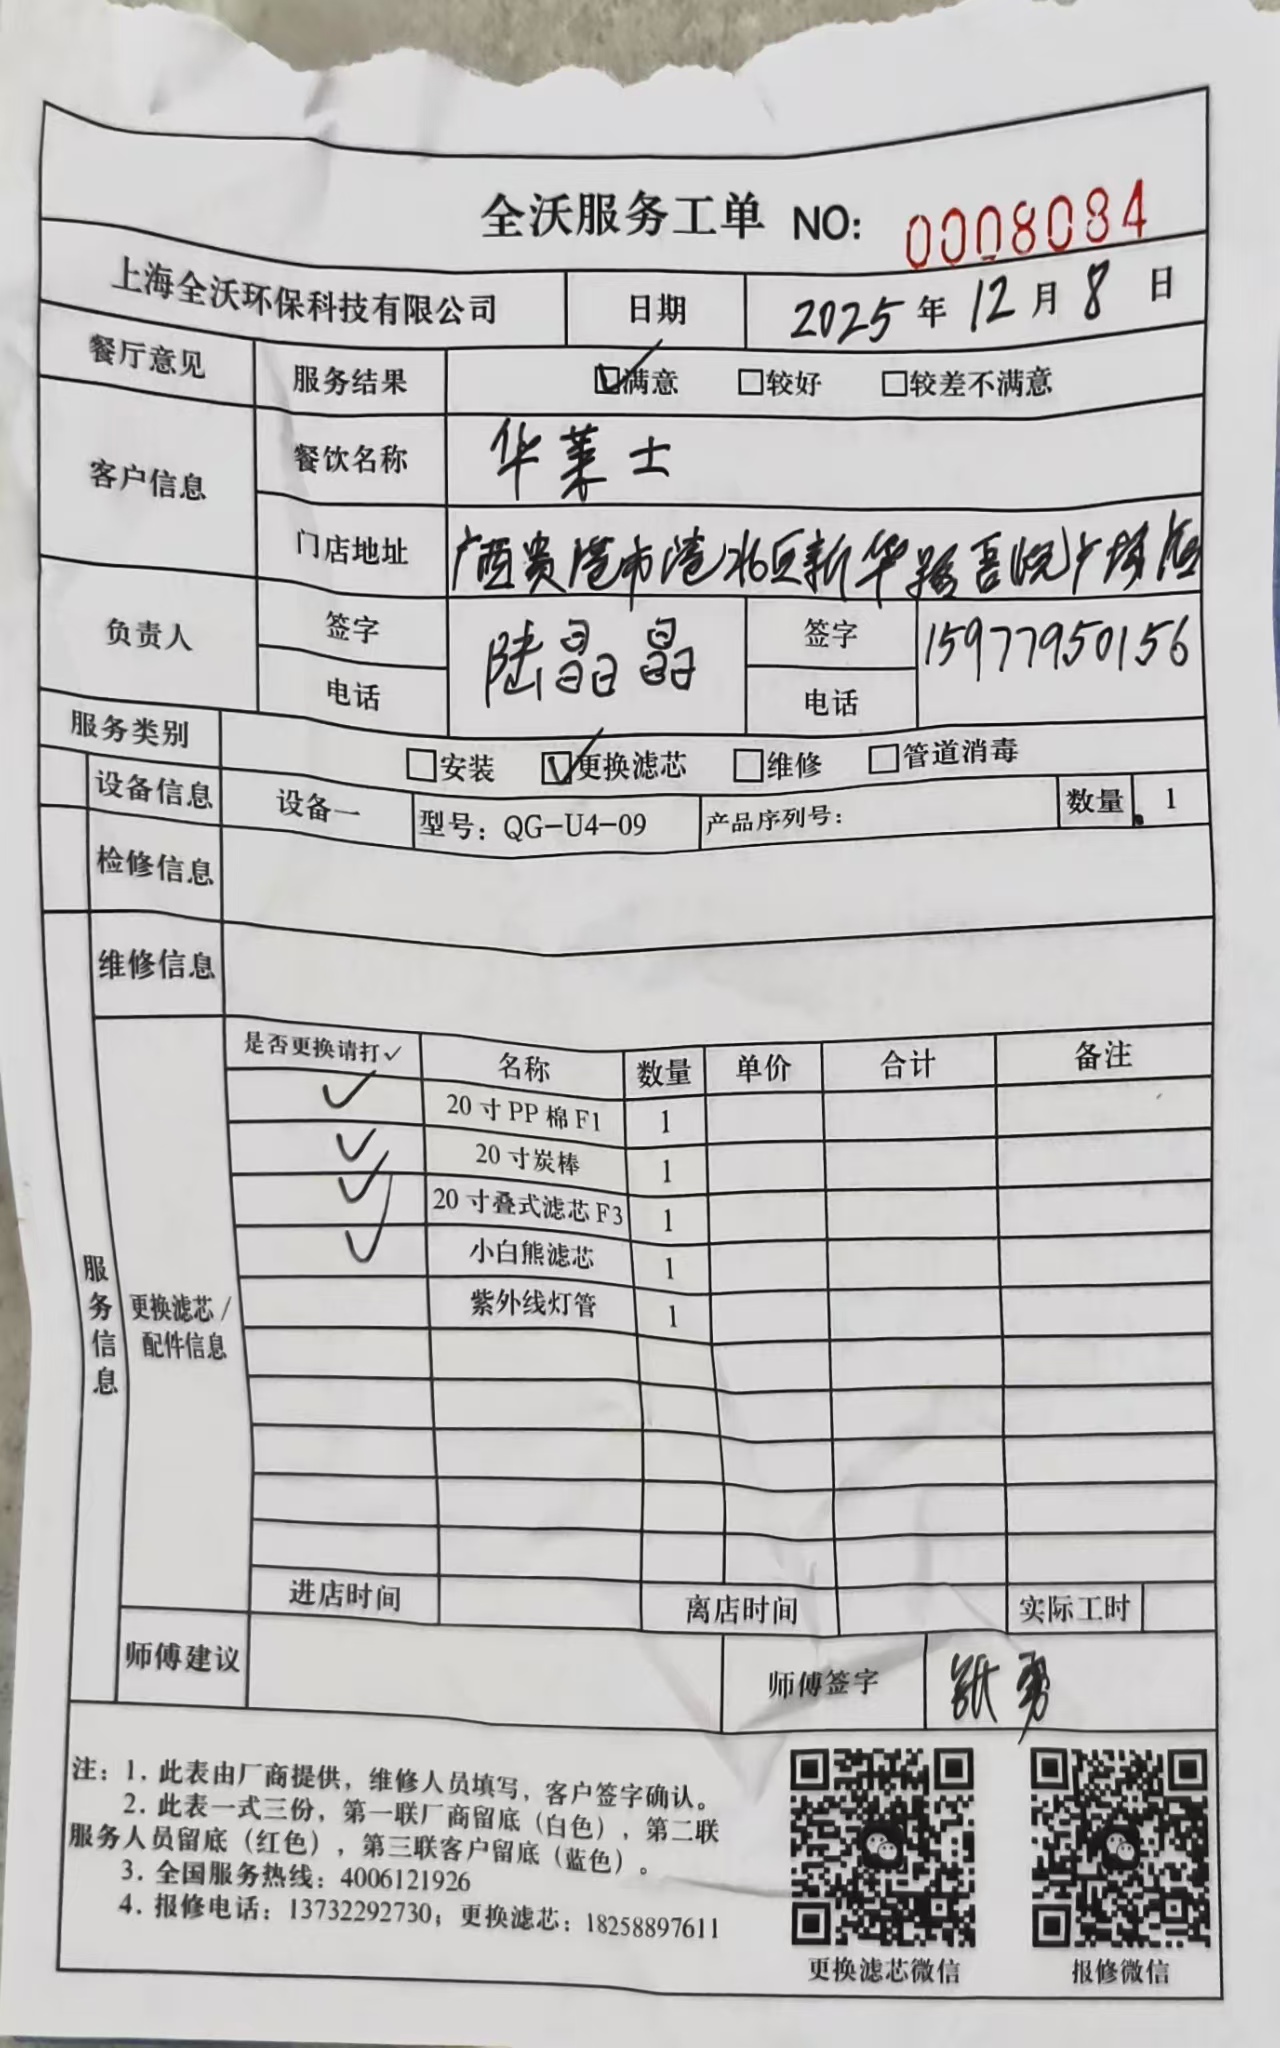 全沃服务工单 NO: 0008084
上海全沃环保科技有限公司 日期 2025年12月8日
餐厅意见 服务结果 ☑满意 □较好 □较差不满意
客户信息 餐饮名称 华莱士
门店地址 广西贵港市港北区新华路吾悦广场店
负责人 签字 陆晶晶 签字 15977950156
电话 电话
服务类别 □安装 ☑更换滤芯 □维修 □管道消毒
设备信息 设备一 型号：QG-U4-09 产品序列号： 数量 1
检修信息
维修信息
服务信息
更换滤芯/
配件信息
是否更换请打✓ 名称 数量 单价 合计 备注
✓ 20寸PP棉F1 1
✓ 20寸炭棒 1
✓ 20寸叠式滤芯F3 1
✓ 小白熊滤芯 1
紫外线灯管 1
进店时间 离店时间 实际工时
师傅建议 师傅签字 张勇
注：1. 此表由厂商提供，维修人员填写，客户签字确认。
2. 此表一式三份，第一联厂商留底（白色），第二联
服务人员留底（红色），第三联客户留底（蓝色）。
3. 全国服务热线：4006121926
4. 报修电话：13732292730；更换滤芯：18258897611
更换滤芯微信 报修微信